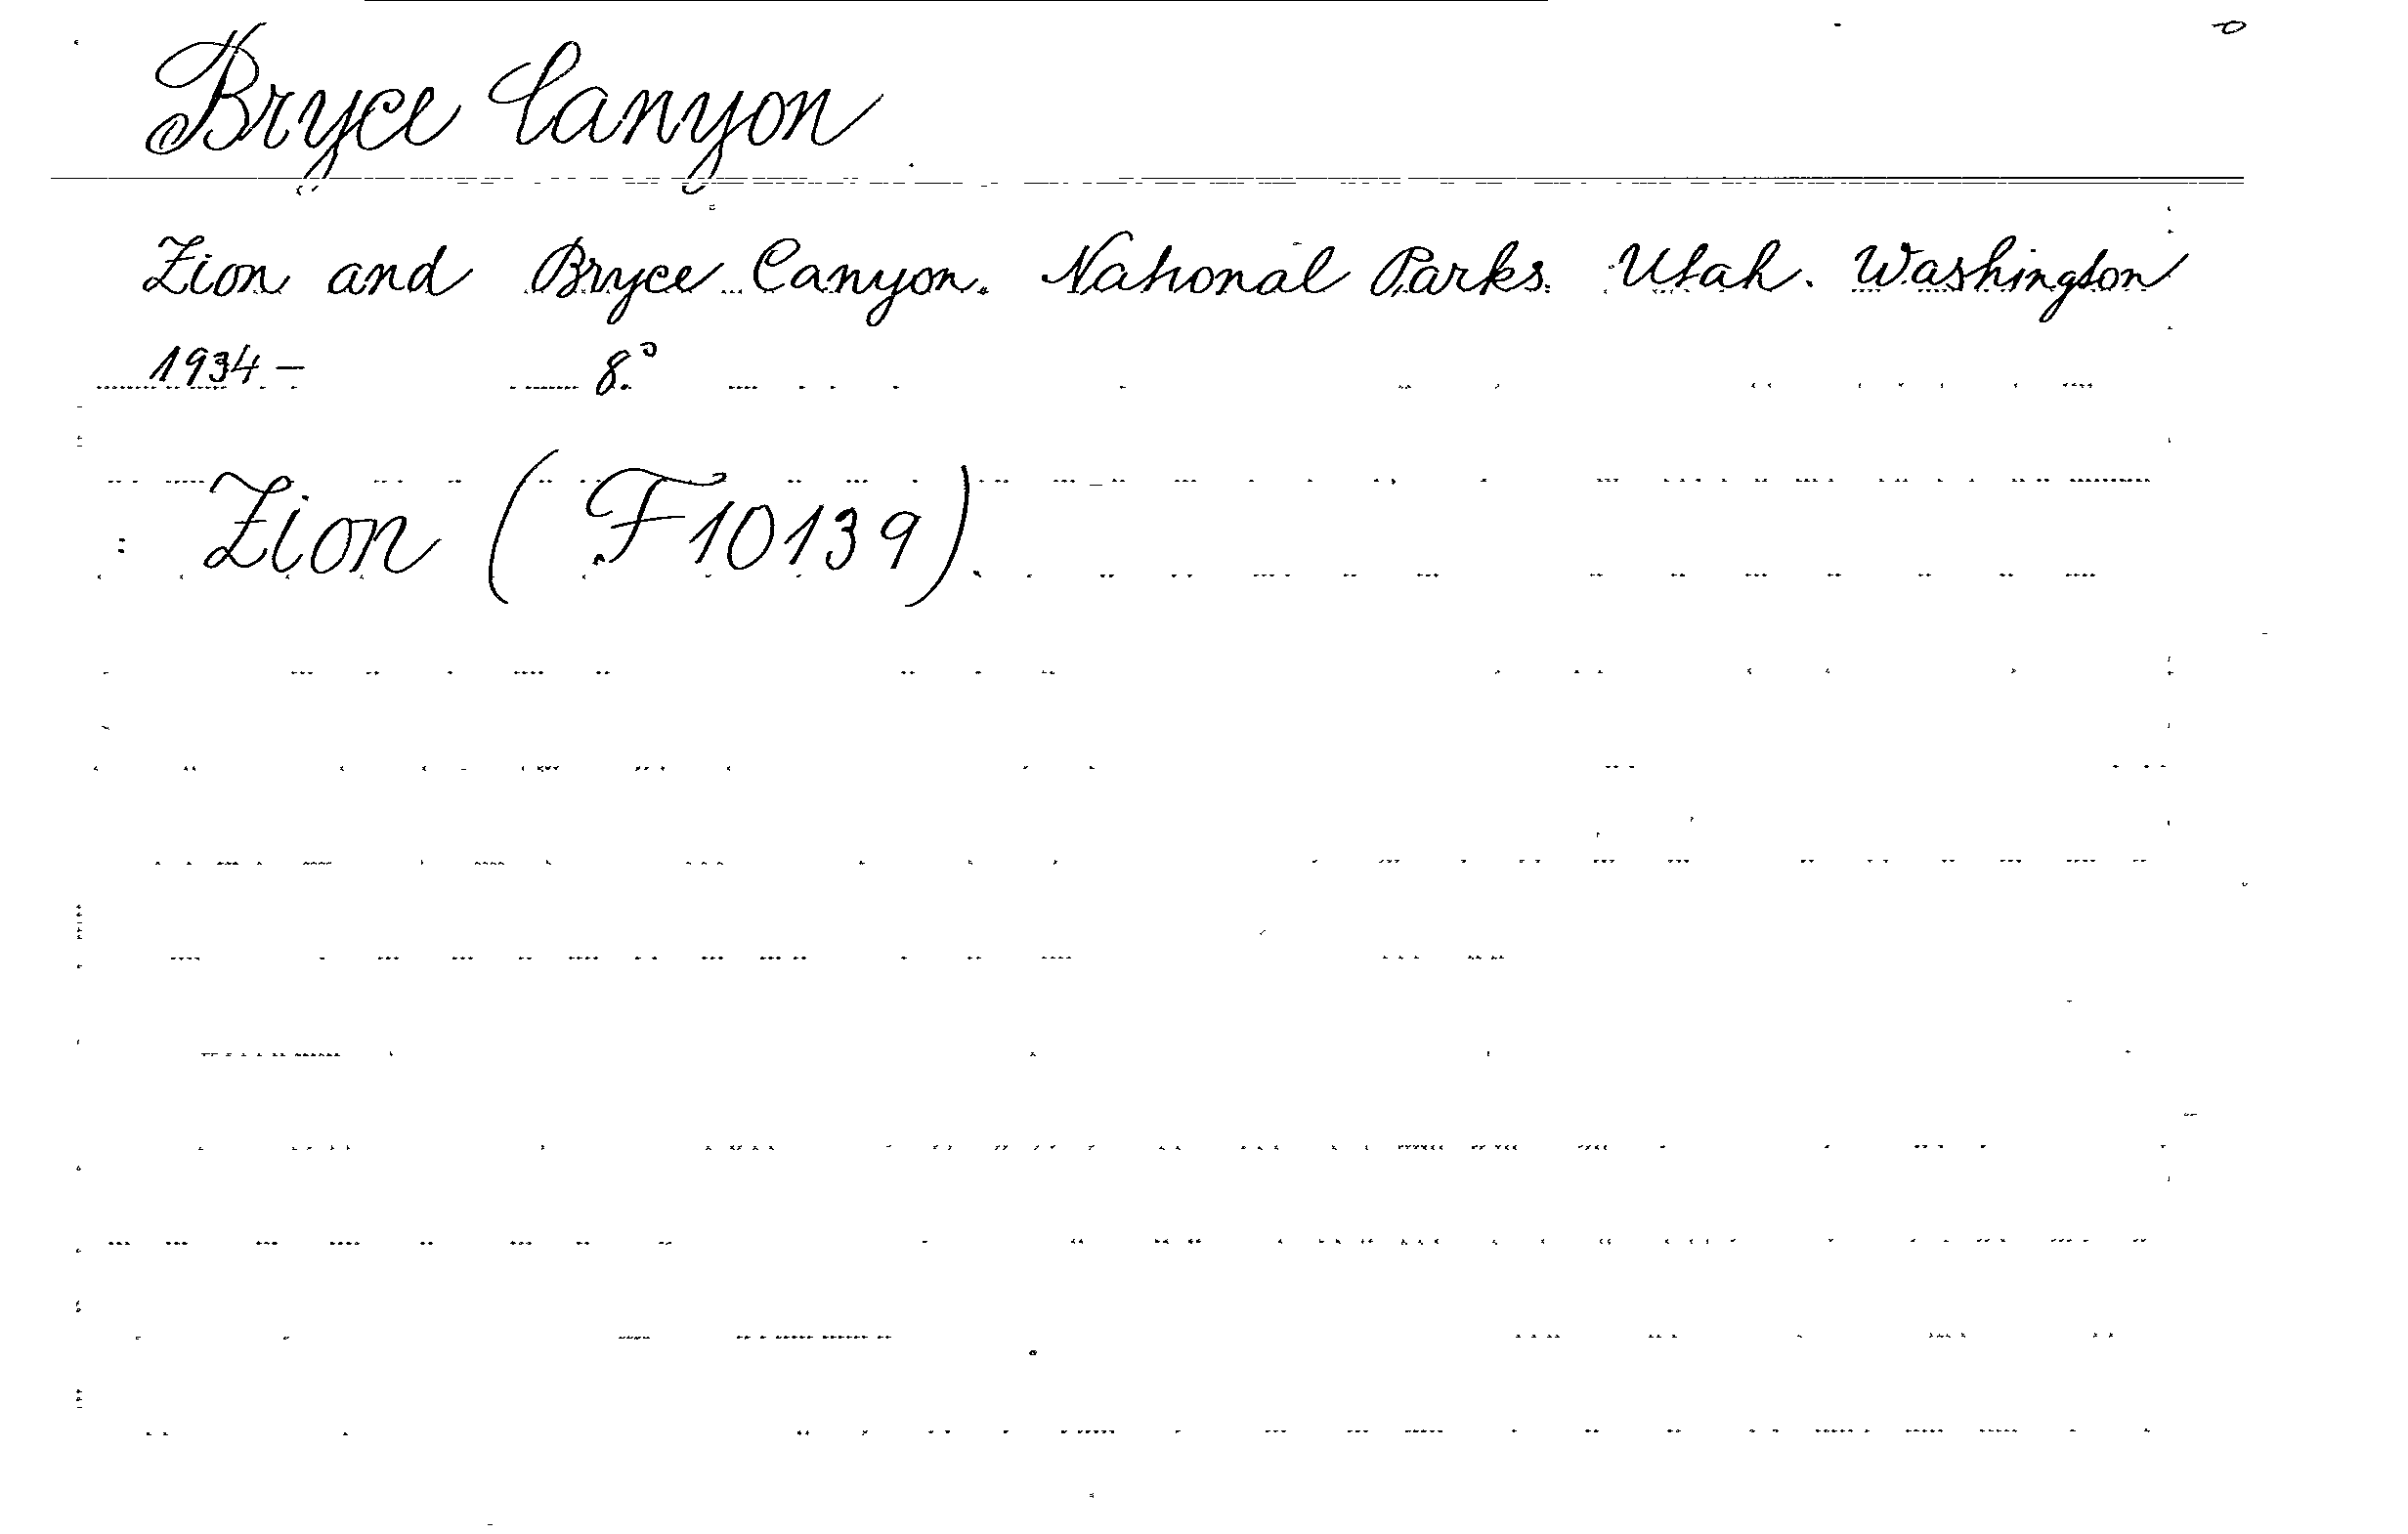 Bryce Canyon
Zion and Bryce Canyon. National Parks. Utah. Washington
1934 – 8.°
Zion (F10139).